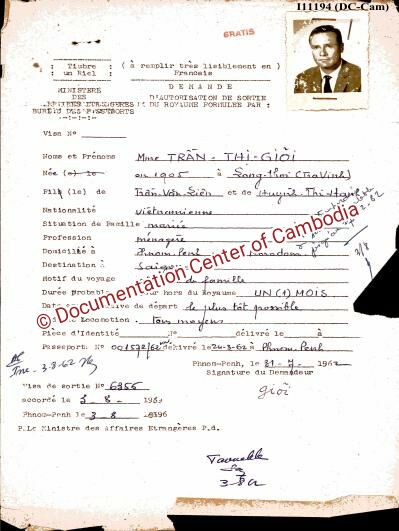 I11194 (DC-Cam)
GRATIS
: Timbre :
: un Riel :
( à remplir très lisiblement en )
Français
MINISTERE
DES
AFFAIRES ETRANGERES
BUREAU DES PASSEPORTS
-:-:-:-:-
DEMANDE
D'AUTORISATION DE SORTIE
DU ROYAUME FORMULEE PAR :
Visa No
Noms et Prénoms Mme TRẦN - THỊ - GIỎI
Née (e) le en 1905 à Long-thoi (TraVinh)
Fille (le) de Trần Văn et de Huỳnh Thị
Nationalité vietnamienne
Situation de Famille mariée
Profession ménagère
Domicilié à Phnom.Penh Norodom
Destination à Saigon
Motif du voyage de famille
Durée probable hors du Royaume UN (1) MOIS
Date de départ le plus tôt possible
Locomotion Tous moyens
Pièce d'Identité No délivré le à
Passeport: No 001572/62 délivré le 26-3-62 à Phnom.Penh
Phnom-Penh, le 31-7-1962
Signature du Demandeur
giỏi
3-8-62
Visa de sortie No 6355
accordé le 3-8-
Phnom-Penh le 3-8-
P.Le Ministre des Affaires Etrangères P.d.
© Documentation Center of Cambodia